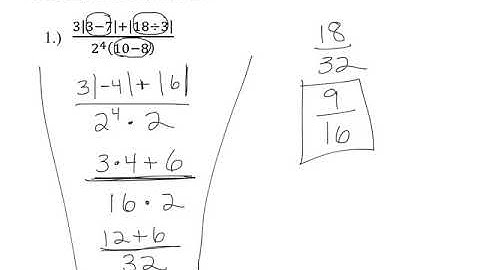 1.) 3|3−7|+|18÷3|
2⁴(10−8)
3|-4|+|6|
2⁴·2
3·4+6
16·2
12+6
32
18
32
9
16